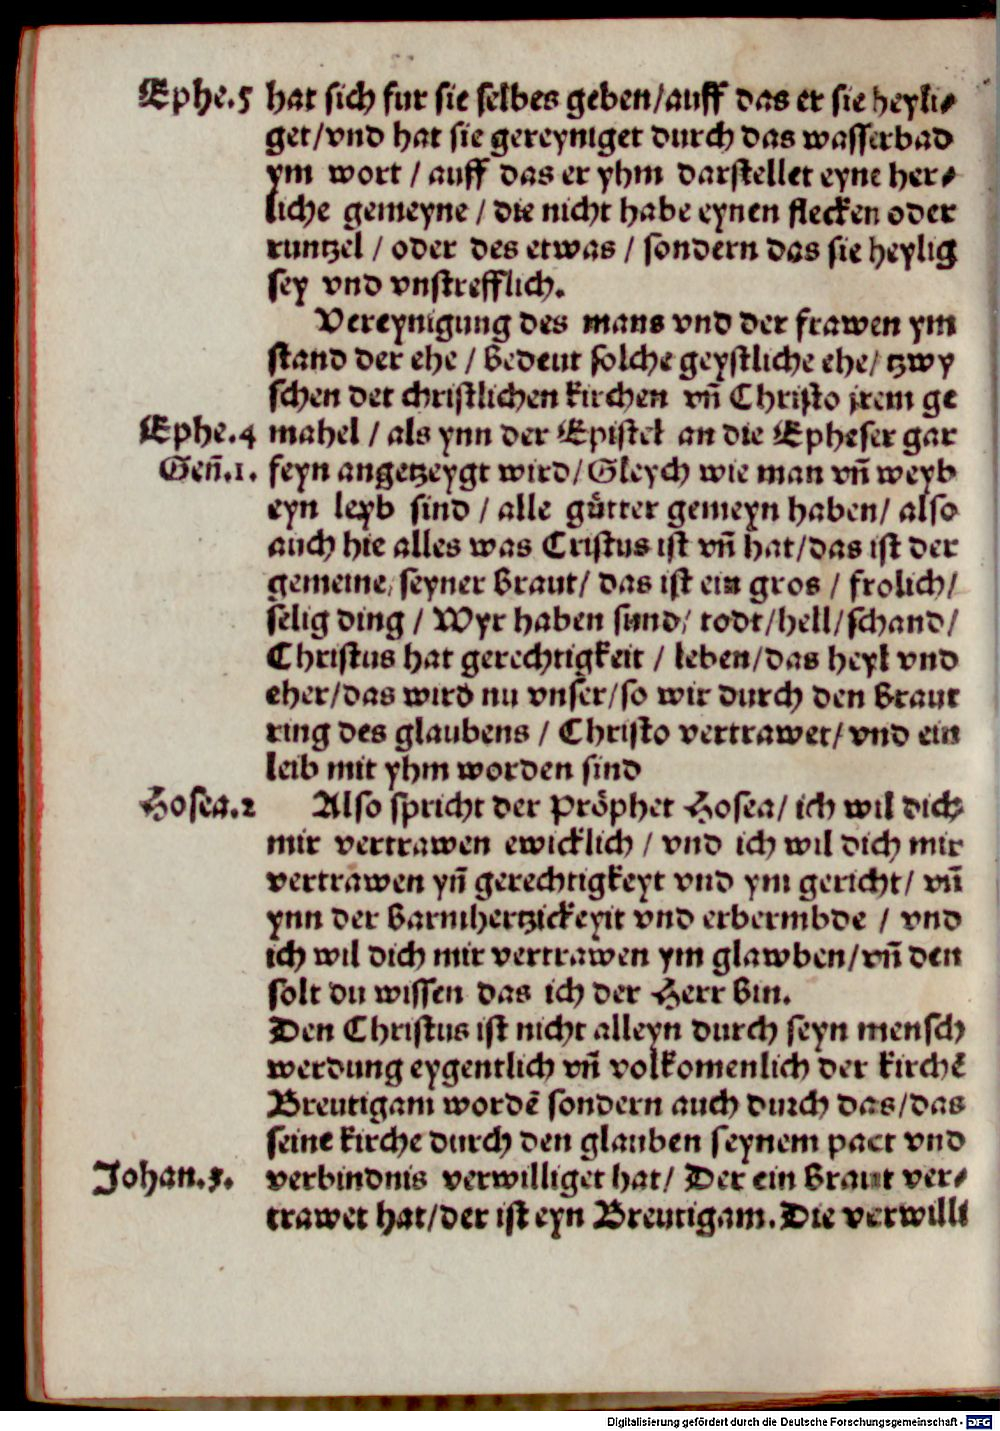 Ephe.5 hat sich fur sie selbes geben/auff das er sie heyli⸗
get/vnd hat sie gereyniget durch das wasserbad
ym wort / auff das er yhm darstellet eyne her⸗
liche gemeyne / die nicht habe eynen flecken oder
runtzel / oder des etwas / sondern das sie heylig
sey vnd vnstrefflich.
Vereynigung des mans vnd der frawen ym
stand der ehe / bedeut solche geystliche ehe/ tzwy
schen der christlichen kirchen vñ Christo jrem ge
Ephe.4 mahel / als ynn der Epistel an die Epheser gar
Geñ.1. feyn angetzeygt wird/ Gleych wie man vñ weyb
eyn leyb sind / alle gůtter gemeyn haben/ also
auch hie alles was Cristus ist vñ hat/das ist der
gemeine/ seyner braut/ das ist ein gros / frolich/
selig ding / Wyr haben sund/ todt/hell/schand/
Christus hat gerechtigkeit / leben/das heyl vnd
eher/das wird nu vnser/so wir durch den braut
ring des glaubens / Christo vertrawet/ vnd ein
leib mit yhm worden sind
Hosea.2 Also spricht der Pröphet Hosea/ ich wil dich
mir vertrawen ewicklich / vnd ich wil dich mir
vertrawen yñ gerechtigkeyt vnd ym gericht/ vñ
ynn der barmhertzickeyit vnd erbermbde / vnd
ich wil dich mir vertrawen ym glawben/vñ den
solt du wissen das ich der Herr bin.
Den Christus ist nicht alleyn durch seyn mensch
werdung eygentlich vñ volkomenlich der kirchē
Breutigam wordē sondern auch durch das/das
seine kirche durch den glauben seynem pact vnd
Johan.3. verbindnis verwilliget hat/ Der ein braut ver⸗
trawet hat/der ist eyn Breutigam. Die verwilli
Digitalisierung gefördert durch die Deutsche Forschungsgemeinschaft - DFG